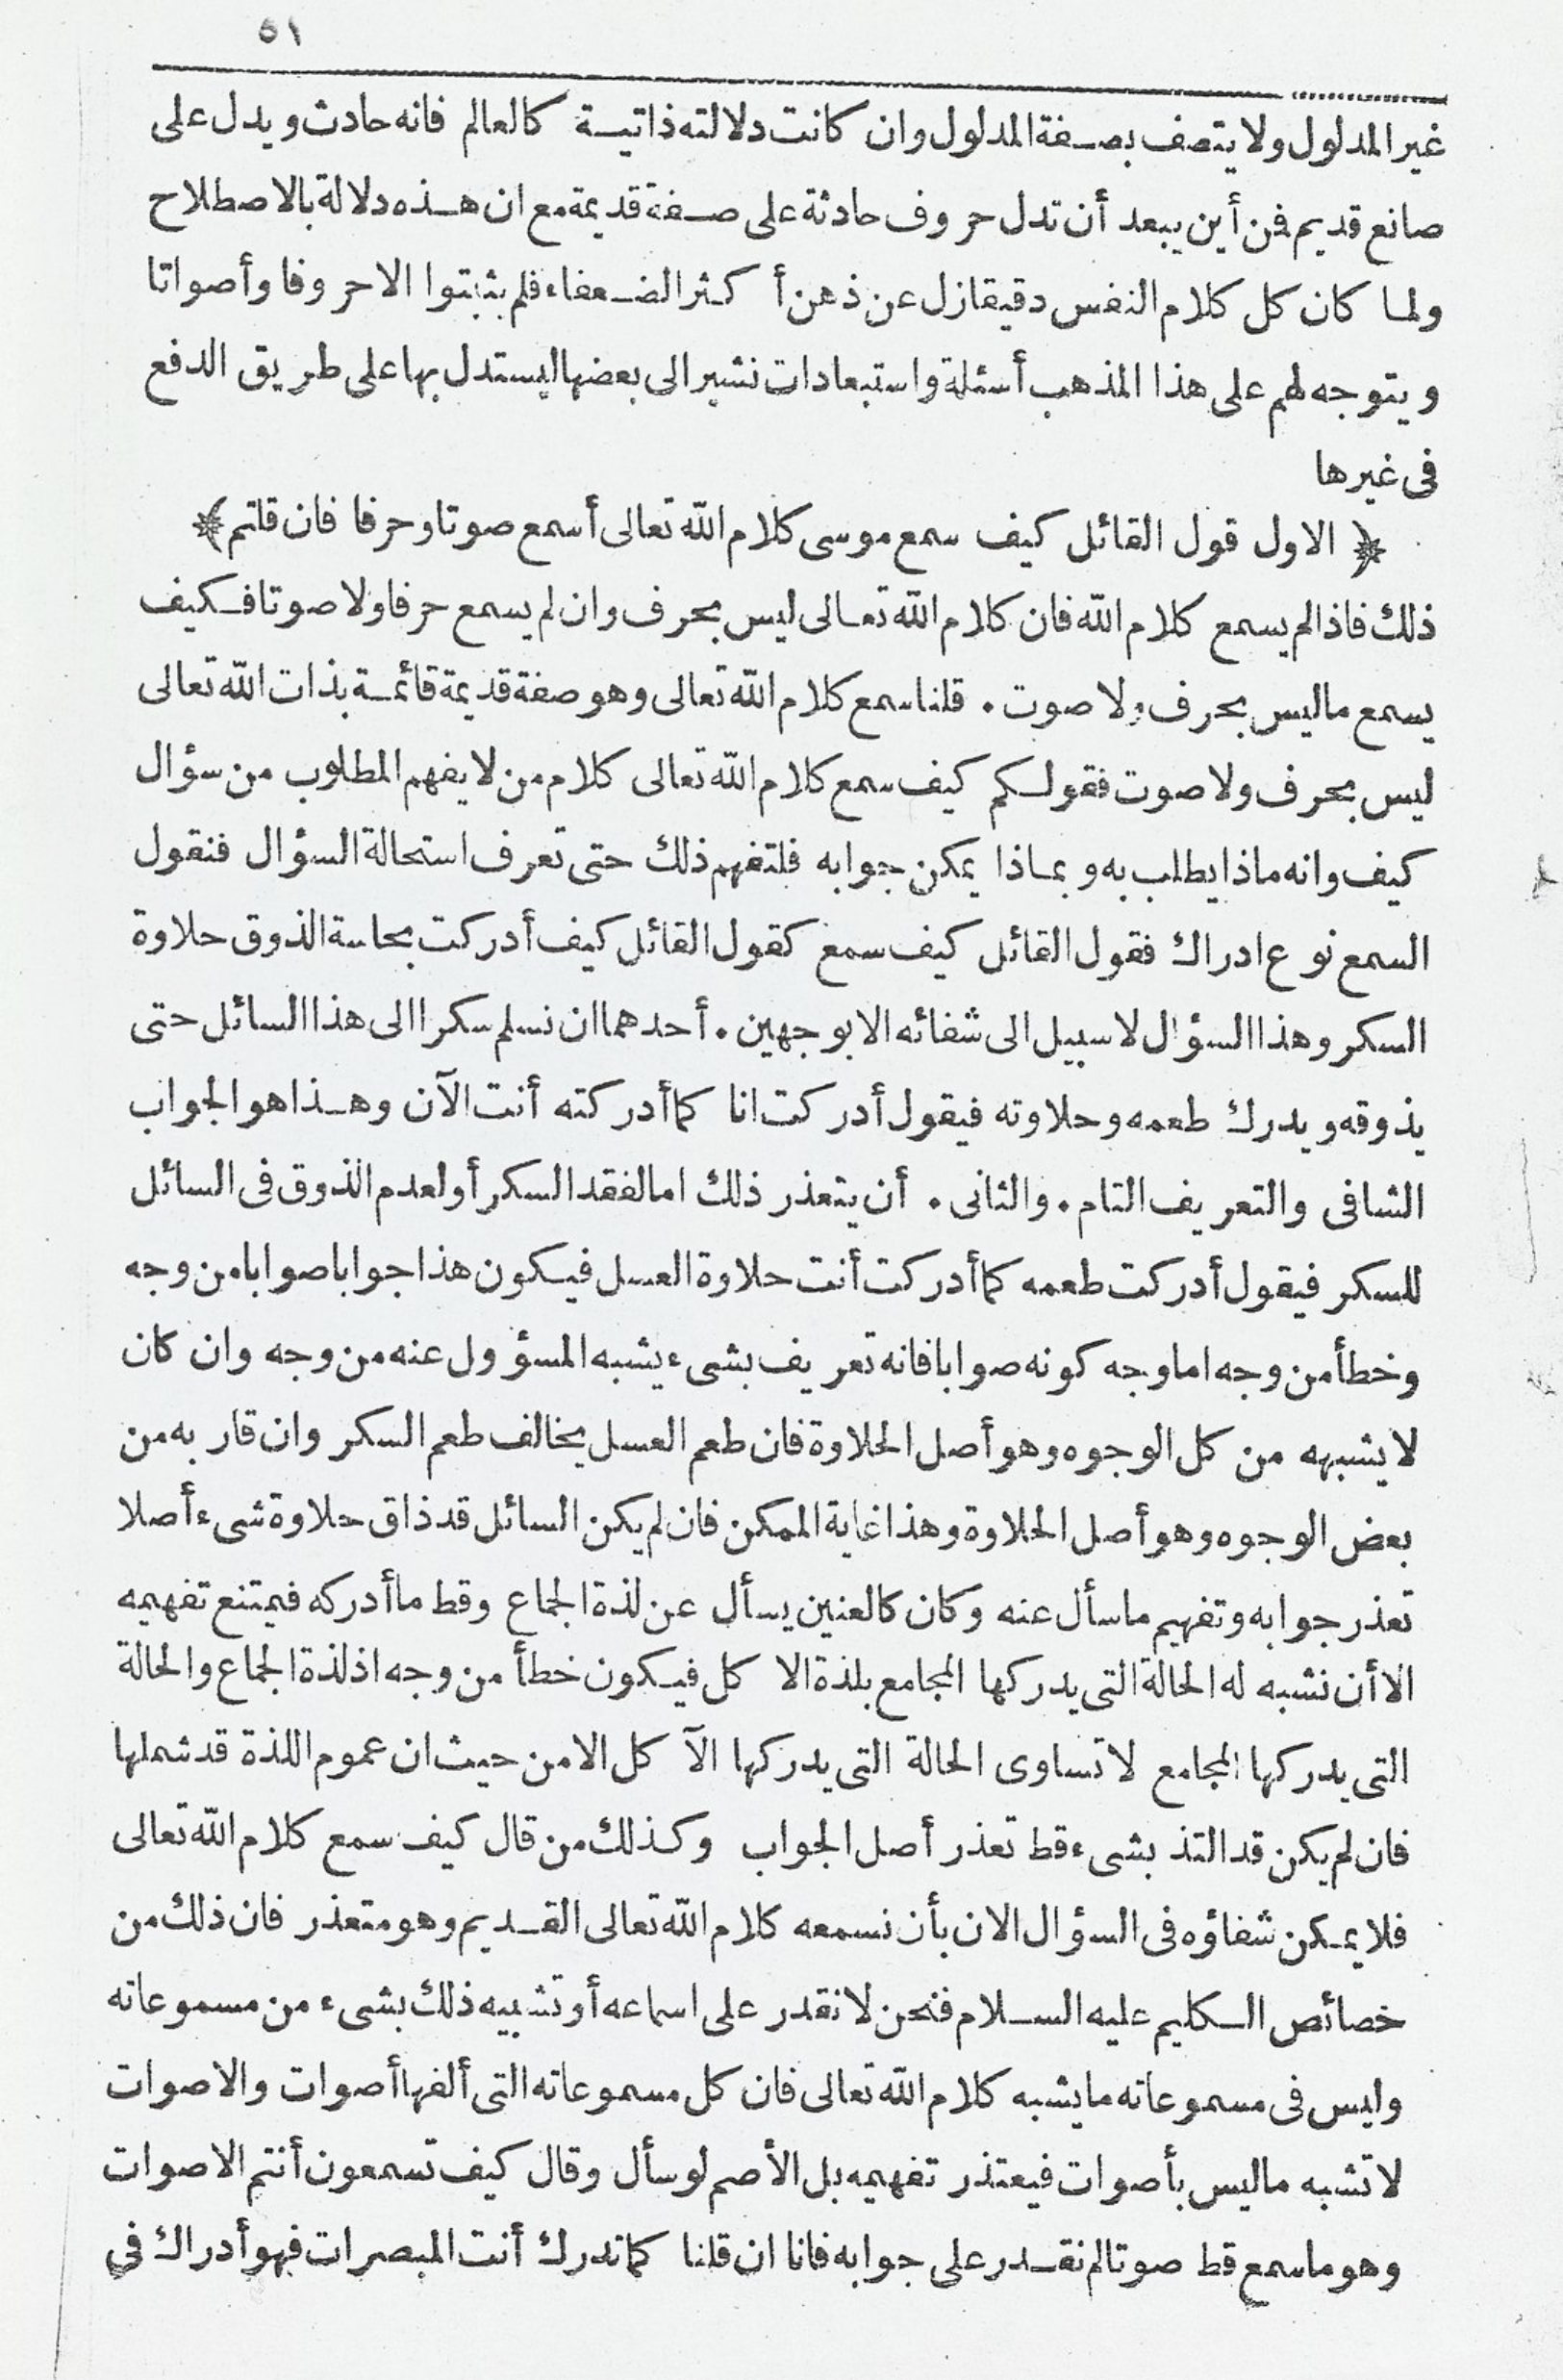 ٥١
غير المدلول ولا يتصف بصفة المدلول وان كانت دلالته ذاتية كالعالم فانه حادث ويدل على
صانع قديم فن أين يبعد أن تدل حروف حادثة على صفة قديمة مع ان هذه دلالة بالاصطلاح
ولما كان كل كلام النفس دقيقا زل عن ذهن أكثر الضعفاء فلم يثبتوا الاحروفا وأصواتا
ويتوجه لهم على هذا المذهب أسئلة واستبعادات نشير الى بعضها ليستدل بها على طريق الدفع
فى غيرها
﴿ الاول قول القائل كيف سمع موسى كلام الله تعالى أسمع صوتا وحرفا فان قلتم ﴾
ذلك فاذا لم يسمع كلام الله فان كلام الله تعالى ليس بحرف وان لم يسمع حرفا ولا صوتا فكيف
يسمع ماليس بحرف ولا صوت . قلنا سمع كلام الله تعالى وهو صفة قديمة قائمة بذات الله تعالى
ليس بحرف ولا صوت فقولكم كيف سمع كلام الله تعالى كلام من لا يفهم المطلوب من سؤال
كيف وانه ماذا يطلب به وبماذا يمكن جوابه فلتفهم ذلك حتى تعرف استحالة السؤال فنقول
السمع نوع ادراك فقول القائل كيف سمع كقول القائل كيف أدركت بحاسة الذوق حلاوة
السكر وهذا السؤال لا سبيل الى شفائه الا بوجهين . أحدهما ان نسلم سكرا الى هذا السائل حتى
يذوقه ويدرك طعمه وحلاوته فيقول أدركت انا كما أدركته أنت الآن وهذا هو الجواب
الشافى والتعريف التام . والثانى . أن يتعذر ذلك اما لفقد السكر أو لعدم الذوق فى السائل
للسكر فيقول أدركت طعمه كما أدركت أنت حلاوة العسل فيكون هذا جوابا صوابا من وجه
وخطأ من وجه اما وجه كونه صوابا فانه تعريف بشىء يشبه المسؤول عنه من وجه وان كان
لا يشبهه من كل الوجوه وهو أصل الحلاوة فان طعم العسل يخالف طعم السكر وان قاربه من
بعض الوجوه وهو أصل الحلاوة وهذا غاية الممكن فان لم يكن السائل قد ذاق حلاوة شىء أصلا
تعذر جوابه وتفهيم ما سأل عنه وكان كالعنين يسأل عن لذة الجماع وقط ما أدركه فيمتنع تفهيمه
الا أن نشبه له الحالة التى يدركها المجامع بلذة الاكل فيكون خطأ من وجه اذ لذة الجماع والحالة
التى يدركها المجامع لا تساوى الحالة التى يدركها الآكل الا من حيث ان عموم اللذة قد شملها
فان لم يكن قد التذ بشىء قط تعذر أصل الجواب وكذلك من قال كيف سمع كلام الله تعالى
فلا يمكن شفاؤه فى السؤال الا ن بأن نسمعه كلام الله تعالى القديم وهو متعذر فان ذلك من
خصائص الكليم عليه السلام فنحن لا نقدر على اسماعه أو تشبيه ذلك بشىء من مسموعاته
وليس فى مسموعاته ما يشبه كلام الله تعالى فان كل مسموعاته التى ألفها أصوات والاصوات
لا تشبه ماليس بأصوات فيعتذر تفهيمه بل الأصم لو سأل وقال كيف تسمعون أنتم الاصوات
وهو ما سمع قط صوتا لم نقدر على جوابه فانا ان قلنا كما تدرك أنت المبصرات فهو أدراك في